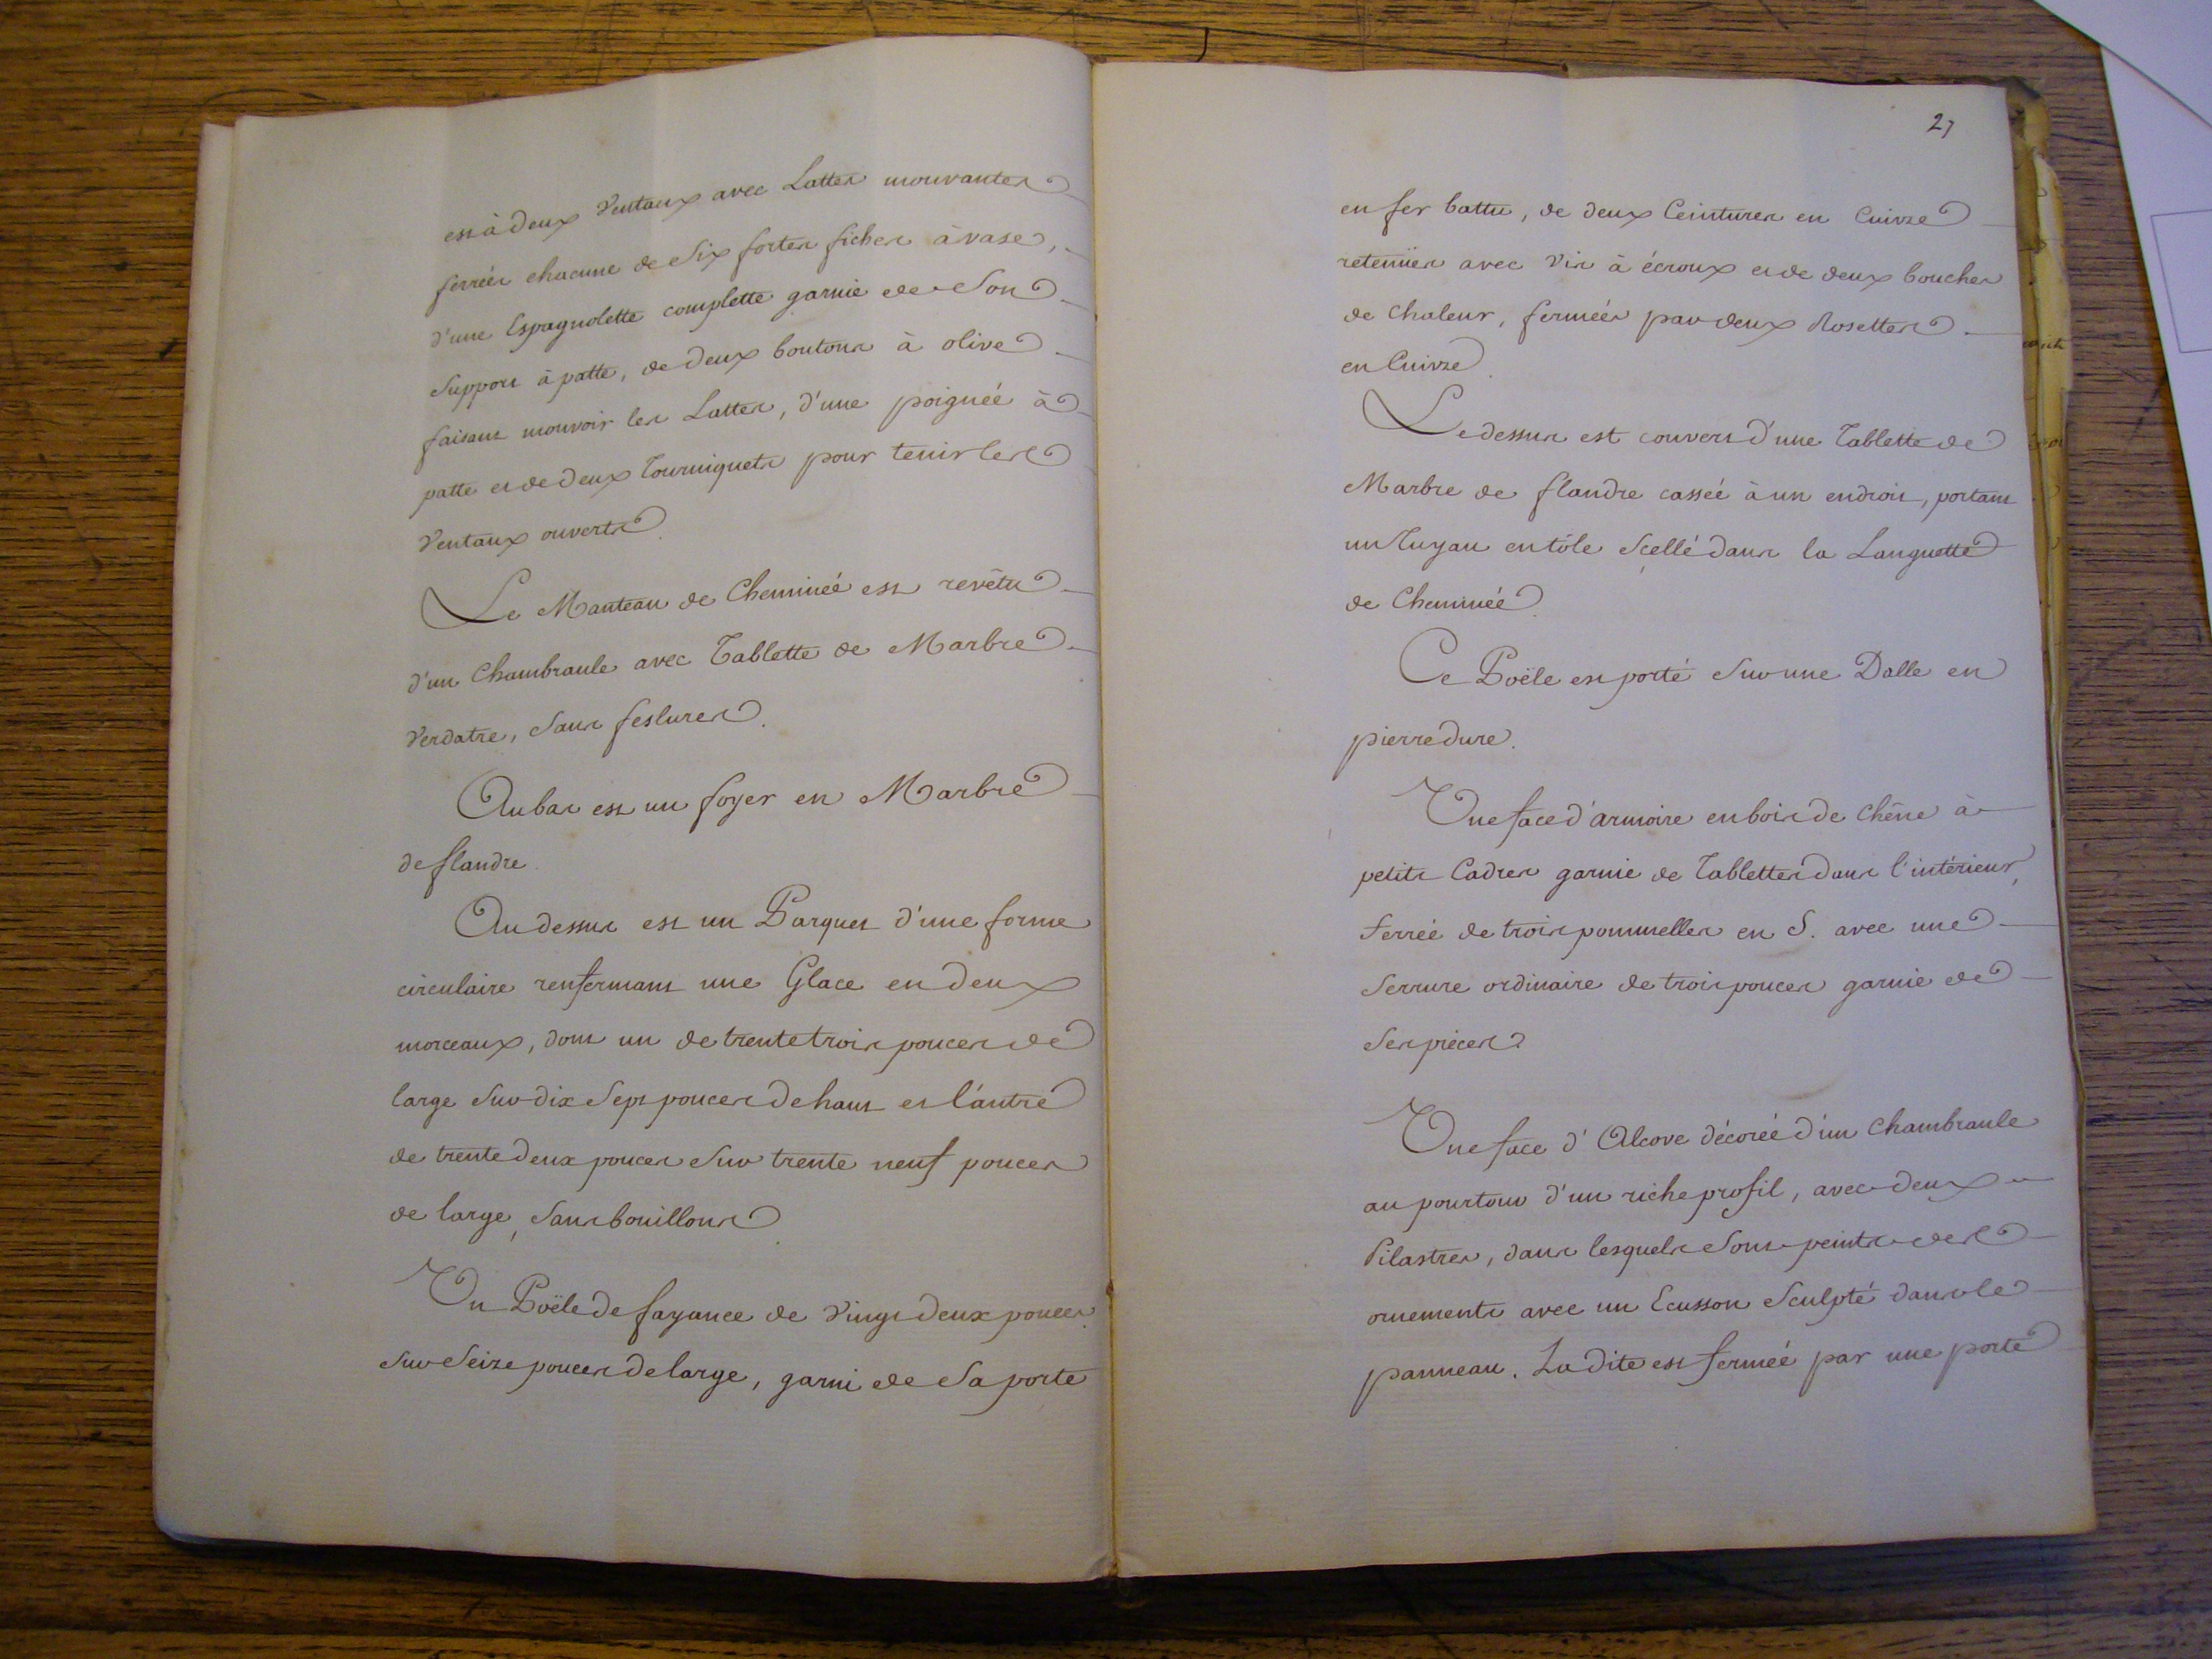 est à deux Ventaux avec Lattes mouvantes
ferrées chacune de Six fortes fiches à vase,
d'une Espagnolette complette garnie de Son
Support à patte, de deux boutons à olive
faisant mouvoir les Lattes, d'une poignée à
patte et de deux Tourniquets pour tenir les
Ventaux ouverts.
Le Manteau de Cheminée est revêtu
d'un Chambranle avec Tablette de Marbre
Verdatre, Sans feslures.
Au bas est un foyer en Marbre
de flandre.
Au dessus est un Parquet d'une forme
circulaire renfermant une Glace en deux
morceaux, dont un de trente trois pouces de
large Sur dix Sept pouces de haut et l'autre
de trente deux pouces Sur trente neuf pouces
de large, Sans bouillons.
Un Poële de fayance de Vingt deux pouces
Sur Seize pouces de large, garni de Sa porte
27
en fer battu, de deux Ceintures en Cuivre
retenües avec Vis à écroux et de deux bouches
de Chaleur, fermées par deux Rosettes
en Cuivre.
Le dessus est couvert d'une Tablette de
Marbre de flandre cassée à un endroit, portant
un Tuyau en tôle Scellé dans la Languette
de Cheminée.
Ce Poële est porté Sur une Dalle en
pierre dure.
Une face d'armoire en bois de Chêne à
petits Cadres garnie de Tablettes dans l'intérieur,
ferrée de trois pommelles en S. avec une
Serrure ordinaire de trois pouces garnie de
Ses pièces.
Une face d'Alcove décorée d'un Chambranle
au pourtour d'un riche profil, avec deux
Pilastres, dans lesquels Sont peints des
ornements avec un Ecusson Sculpté dans le
panneau. La dite est fermée par une porte